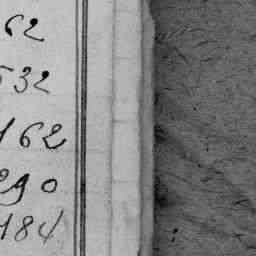 62
532
162
290
184